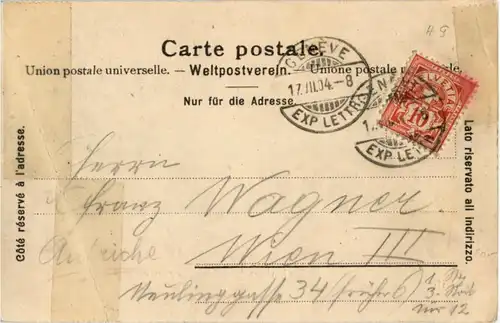 49
Carte postale.
Union postale universelle. — Weltpostverein. — Unione postale universale.
Nur für die Adresse.
GENÈVE
17.VII.04.-8
EXP. LETTR.
HELVETIA
10
EXP. LETTR.
Côté réservé à l'adresse.
Lato riservato all indirizzo.
Herrn
Franz Wagner
Autriche
Wien III
34 (früher 6)
12